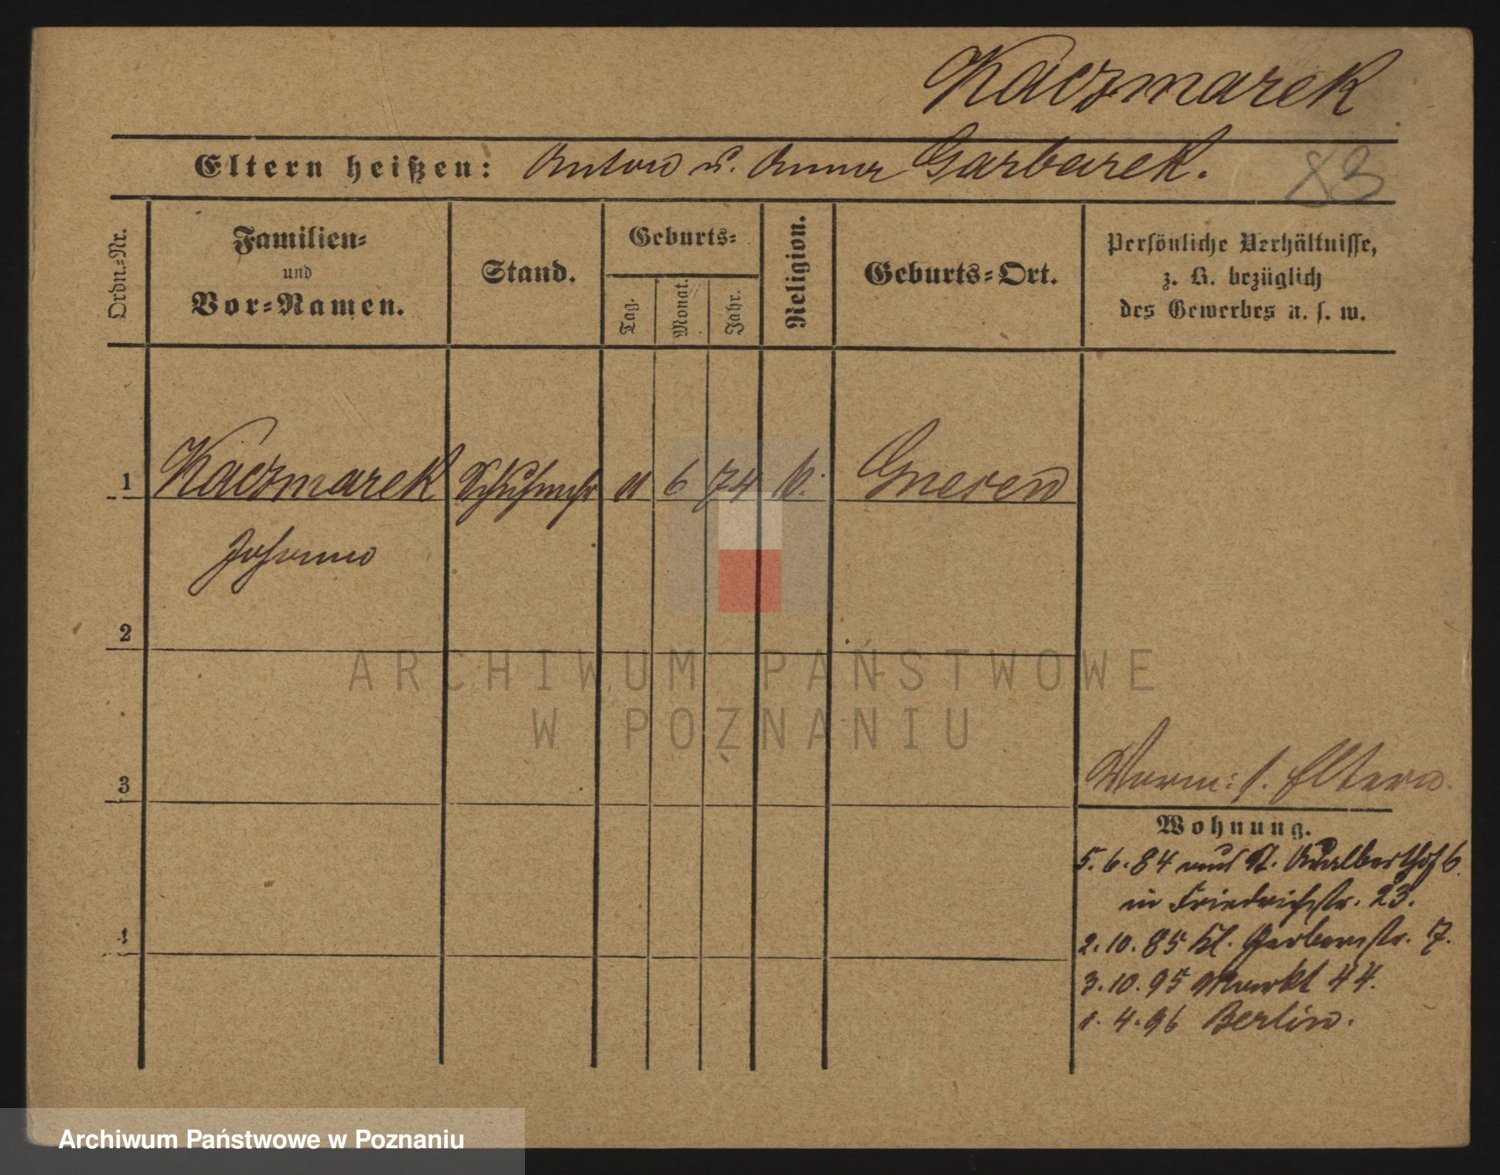 Kaczmarek
Eltern heißen: Anton u. Anna Garbarek.
83
Ordn.-Nr.
Familien-
und
Vor-Namen.
Stand.
Geburts-
Tag.
Monat.
Jahr.
Religion.
Geburts-Ort.
Persönliche Verhältnisse,
z. B. bezüglich
des Gewerbes u. s. w.
1 Kaczmarek Schuhmchr 11 6 74 k. Gnesen
Johann
2
ARCHIWUM PAŃSTWOWE
W POZNANIU
3
Worm: s. Eltern.
Wohnung.
5.6.84 aus St. Adalberthof 6
in Friedrichstr. 23.
4
2.10.85 Kl. Gerberstr. 7.
3.10.95 Markt 44.
1.4.96 Berlin.
Archiwum Państwowe w Poznaniu